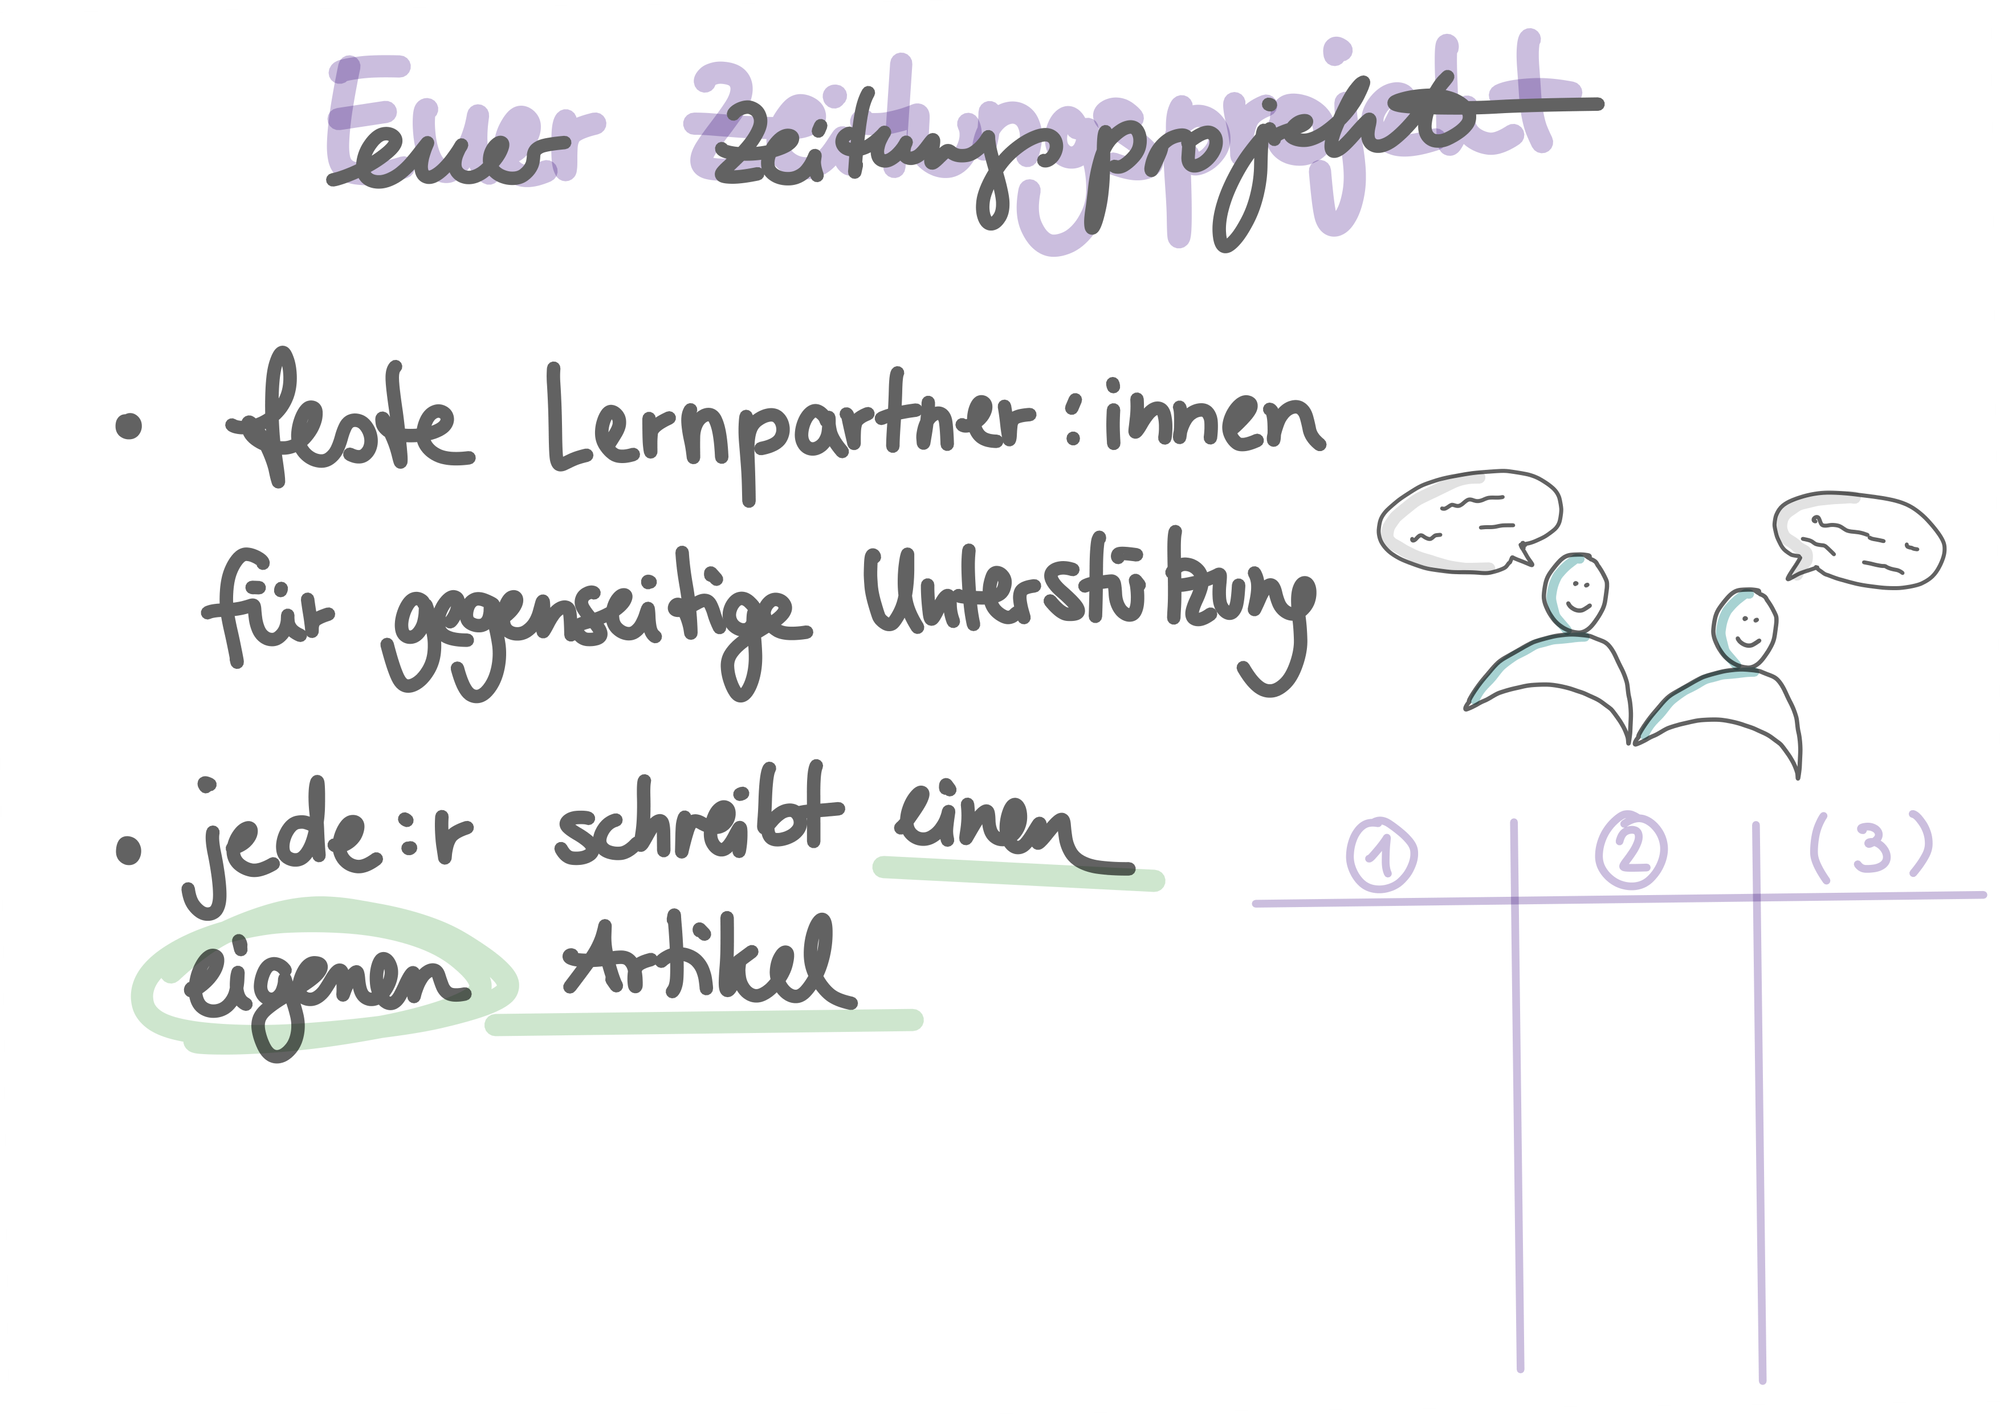 Euer Zeitungsprojekt
euer Zeitungsprojekt
• feste Lernpartner:innen
für gegenseitige Unterstützung
• jede:r schreibt einen
eigenen Artikel
1 2 (3)